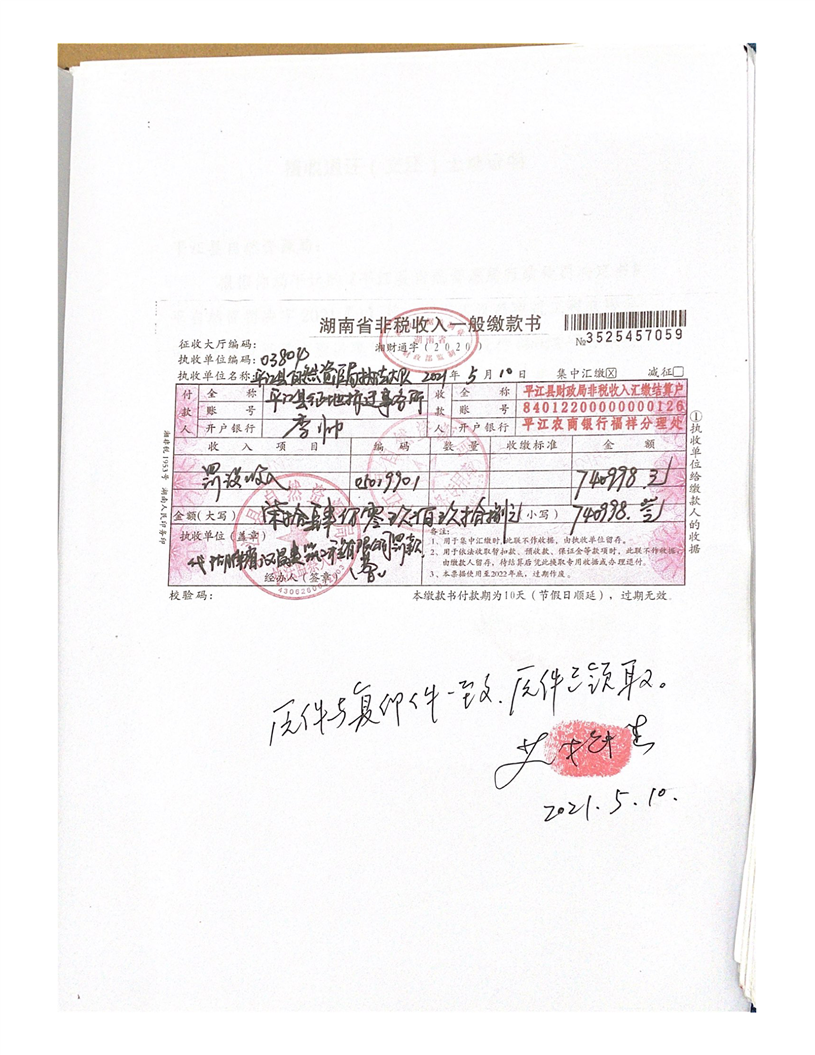 湖南省非税收入一般缴款书
湘财通字(2020)
№3525457059
征收大厅编码:
执收单位编码:038040
执收单位名称:平江县自然资源局执法大队 2021年5月10日 集中汇缴☒ 减征☐
付款人 全称 平江县征地拆迁事务所 收款人 全称 平江县财政局非税收入汇缴结算户
账号 账号 84012200000000126
开户银行 李帅 开户银行 平江农商银行福祥分理处
收入项目 编码 数量 收缴标准 金额
罚没收入 05019901 740998元
金额(大写) 柒拾肆万零玖佰玖拾捌元 (小写) 740998.
执收单位(盖章)
罚款
经办人(签章)
备注:
1、用于集中汇缴时,此联不作收据,由执收单位留存。
2、用于依法收取暂扣款、预收款、保证金等款项时,此联不作收据;
由缴款人留存,待结算后凭此换取专用收据或办理退付。
3、本票据使用至2022年底,过期作废。
校验码: 本缴款书付款期为10天(节假日顺延),过期无效。
①执收单位给缴款人的收据
湘非税 1953号 湖南人民印务印
原件与复印件一致、原件已领取。
2021.5.10.